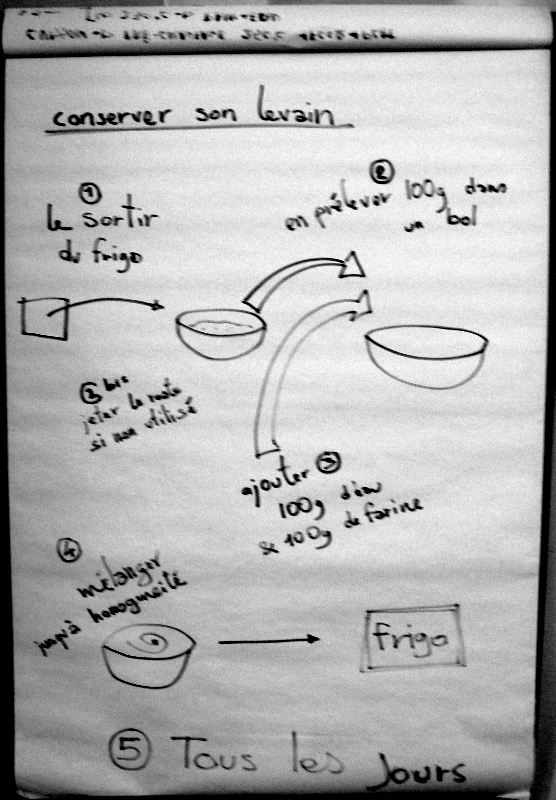 conserver son levain
①
le sortir
du frigo
②
en prélever 100g dans
un bol
② bis
jeter le reste
si non utilisé
ajouter ③
100g d'eau
& 100g de farine
④
mélanger
jusqu'à homogneité
frigo
⑤ Tous les Jours